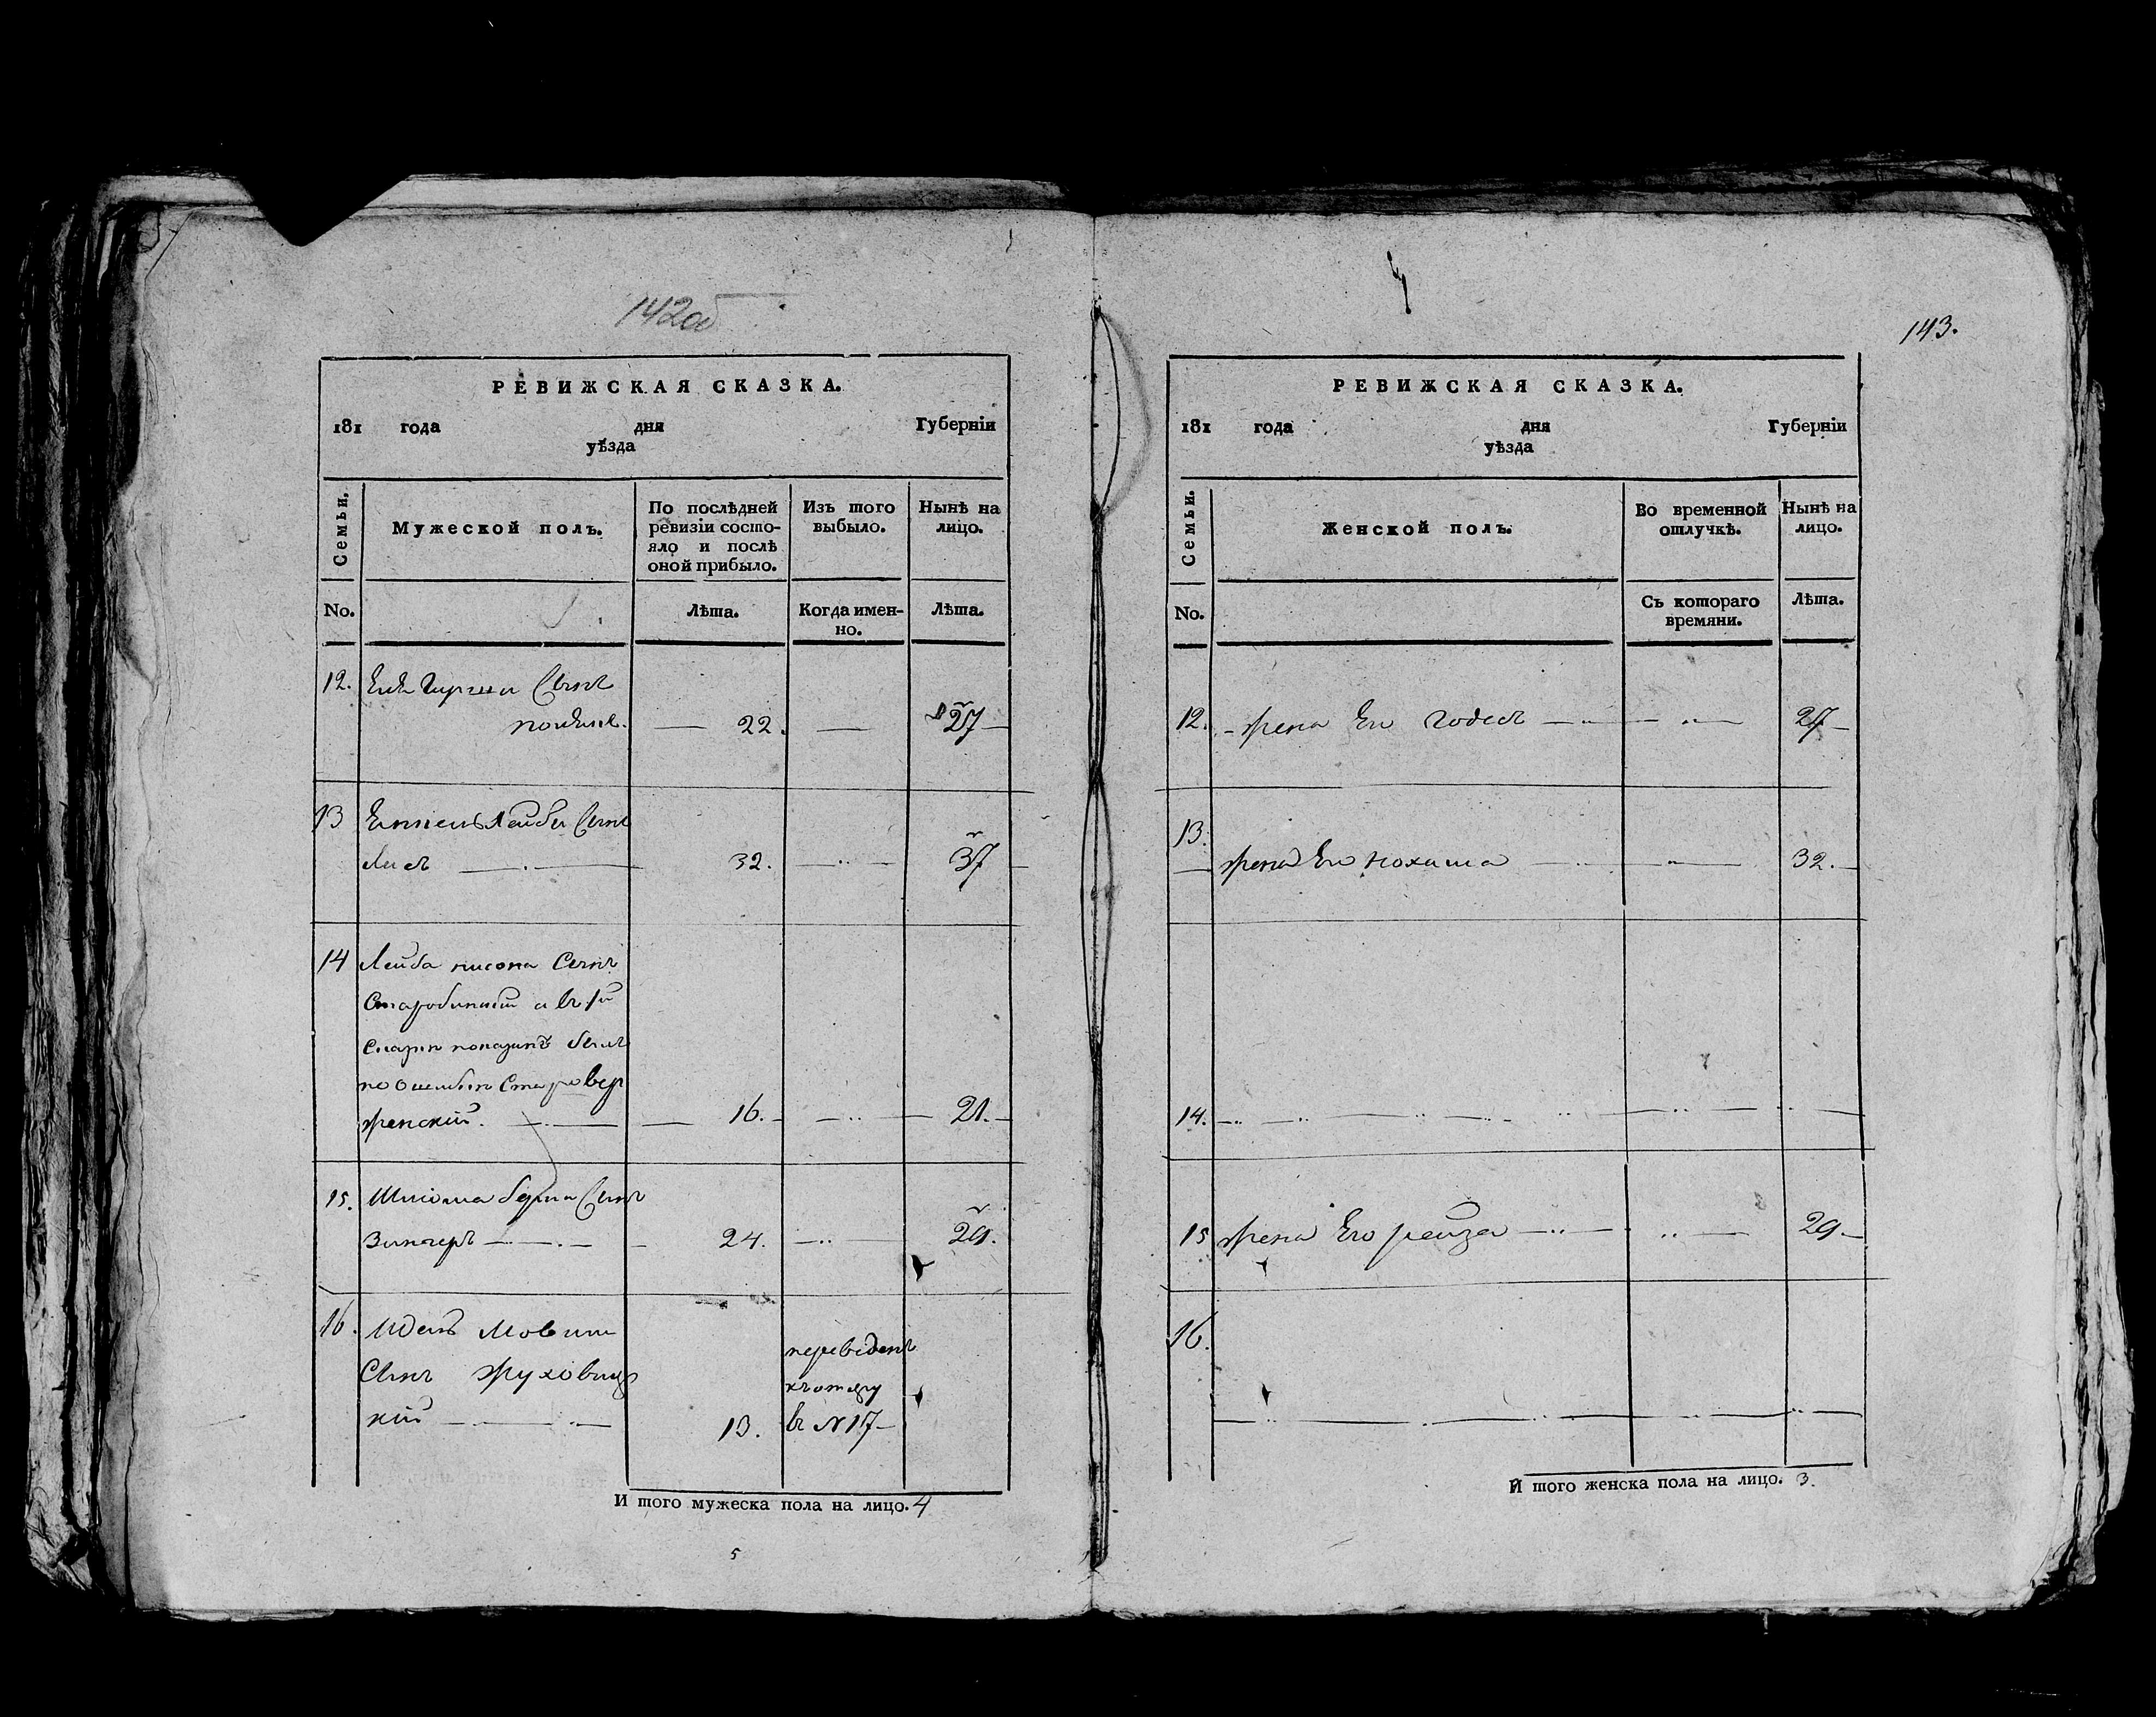 142об
РЕВИЖСКАЯ СКАЗКА.
181 года дня Губерніи
уѣзда
Семьи.
Мужеской полъ.
По послѣдней ревизіи состо-
яло и послѣ оной прибыло.
Изъ того выбыло.
Нынѣ на лицо.
No.
Лѣта.
Когда имен-
но.
Лѣта.
12. Сынъ
22. 27
13 Лейбы Сынъ
32. 37
14 Лейба нисона Сынъ
Старобинскій а въ
сказки показанъ былъ
по ошибки Старовер
женскій. 16. 21.
15. Шлiома берка Сынъ
Зингеръ 24. 29.
16. Идель Мовши
Сынъ Жуховиц
кій 13.
переведенъ
къ отцу
в N 17
И того мужеска пола на лицо. 4
5
143.
РЕВИЖСКАЯ СКАЗКА.
181 года дня Губерніи
уѣзда
Семьи.
Женской полъ.
Во временной отлучкѣ.
Нынѣ на лицо.
No.
Съ котораго времяни.
Лѣта.
12. жена Его Годесъ 27
13.
жена Его Нохама 32.
14.
15 жена Его рейза 29
16.
И того женска пола на лицо. 3.